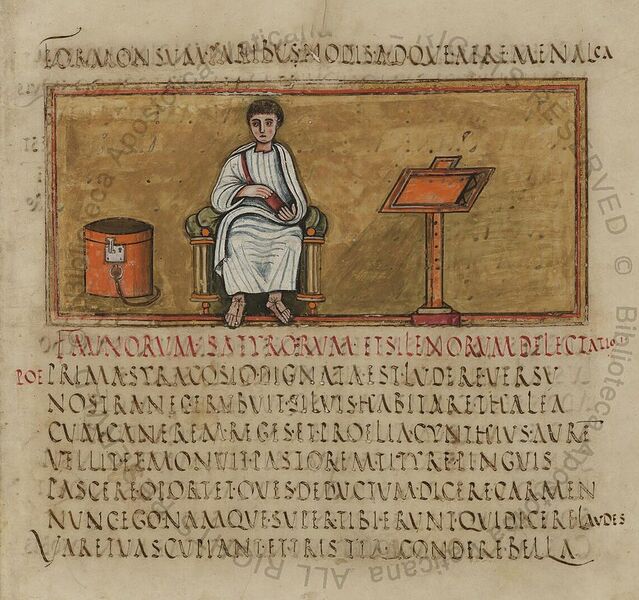 FORMONSVM·PARIBVS·NODIS·ADQVE·AERE·MENALCA
FAVNORVM·SATYRORVM·ET·SILENORVM·DELECTATIO
POE PRIMA·SYRACOSIO·DIGNATA·EST·LVDERE·VERSV
NOSTRA·NEC·ERVBVIT·SILVIS·HABITARE·THALEA
CVM·CANEREM·REGES·ET·PROELIA·CYNTHIVS·AVRE
VELLIT·ET·MONVIT·PASTOREM·TITYRE·PINGVIS
PASCERE·OPORTET·OVES·DEDVCTVM·DICERE·CARMEN
NVNC·EGO·NAMQVE·SVPER·TIBI·ERVNT·QVI·DICERE·LAVDES
VARE·TVAS·CVPIANT·ET·TRISTIA·CONDERE·BELLA
© Biblioteca Apostolica Vaticana ALL RIGHTS RESERVED